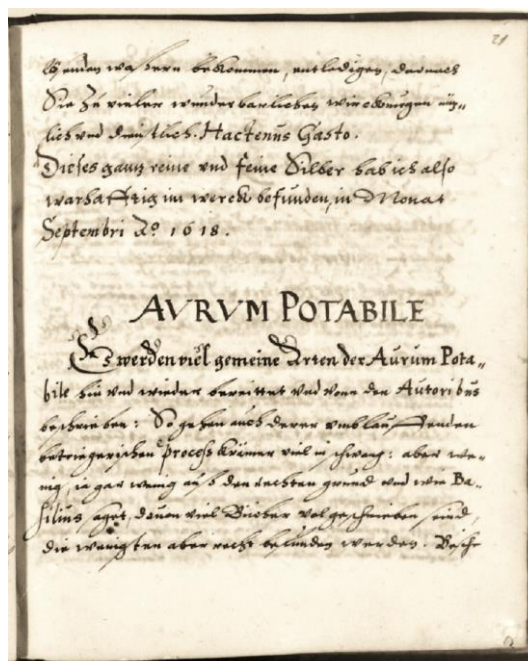 21
wenden wassern bekommen, entledigen, darnach
Sie zu vieler wunderbarlichen wirckungen nüz-
lich vnd dinstlich. Hactenus Gasto.
Dieses ganz reine vnd feine Silber hab ich also
warhafftig im werck befunden, in Monat
Septembri Aº 1618.
AVRVM POTABILE
Es werden viel gemeine Arten der Aurum Pota-
bile hin vnd wieder bereittet vnd vonn den Autoribus
beschrieben: So gehen auch derer vmblauffenden
betriegerischen process Krämer viel in schwang: aber we-
nig, ia gar wenig auß den rechten grund vnd wie Ba-
silius sagt, dauon viel Bücher vol geschrieben sind,
die wenigsten aber recht befunden werden. Besche